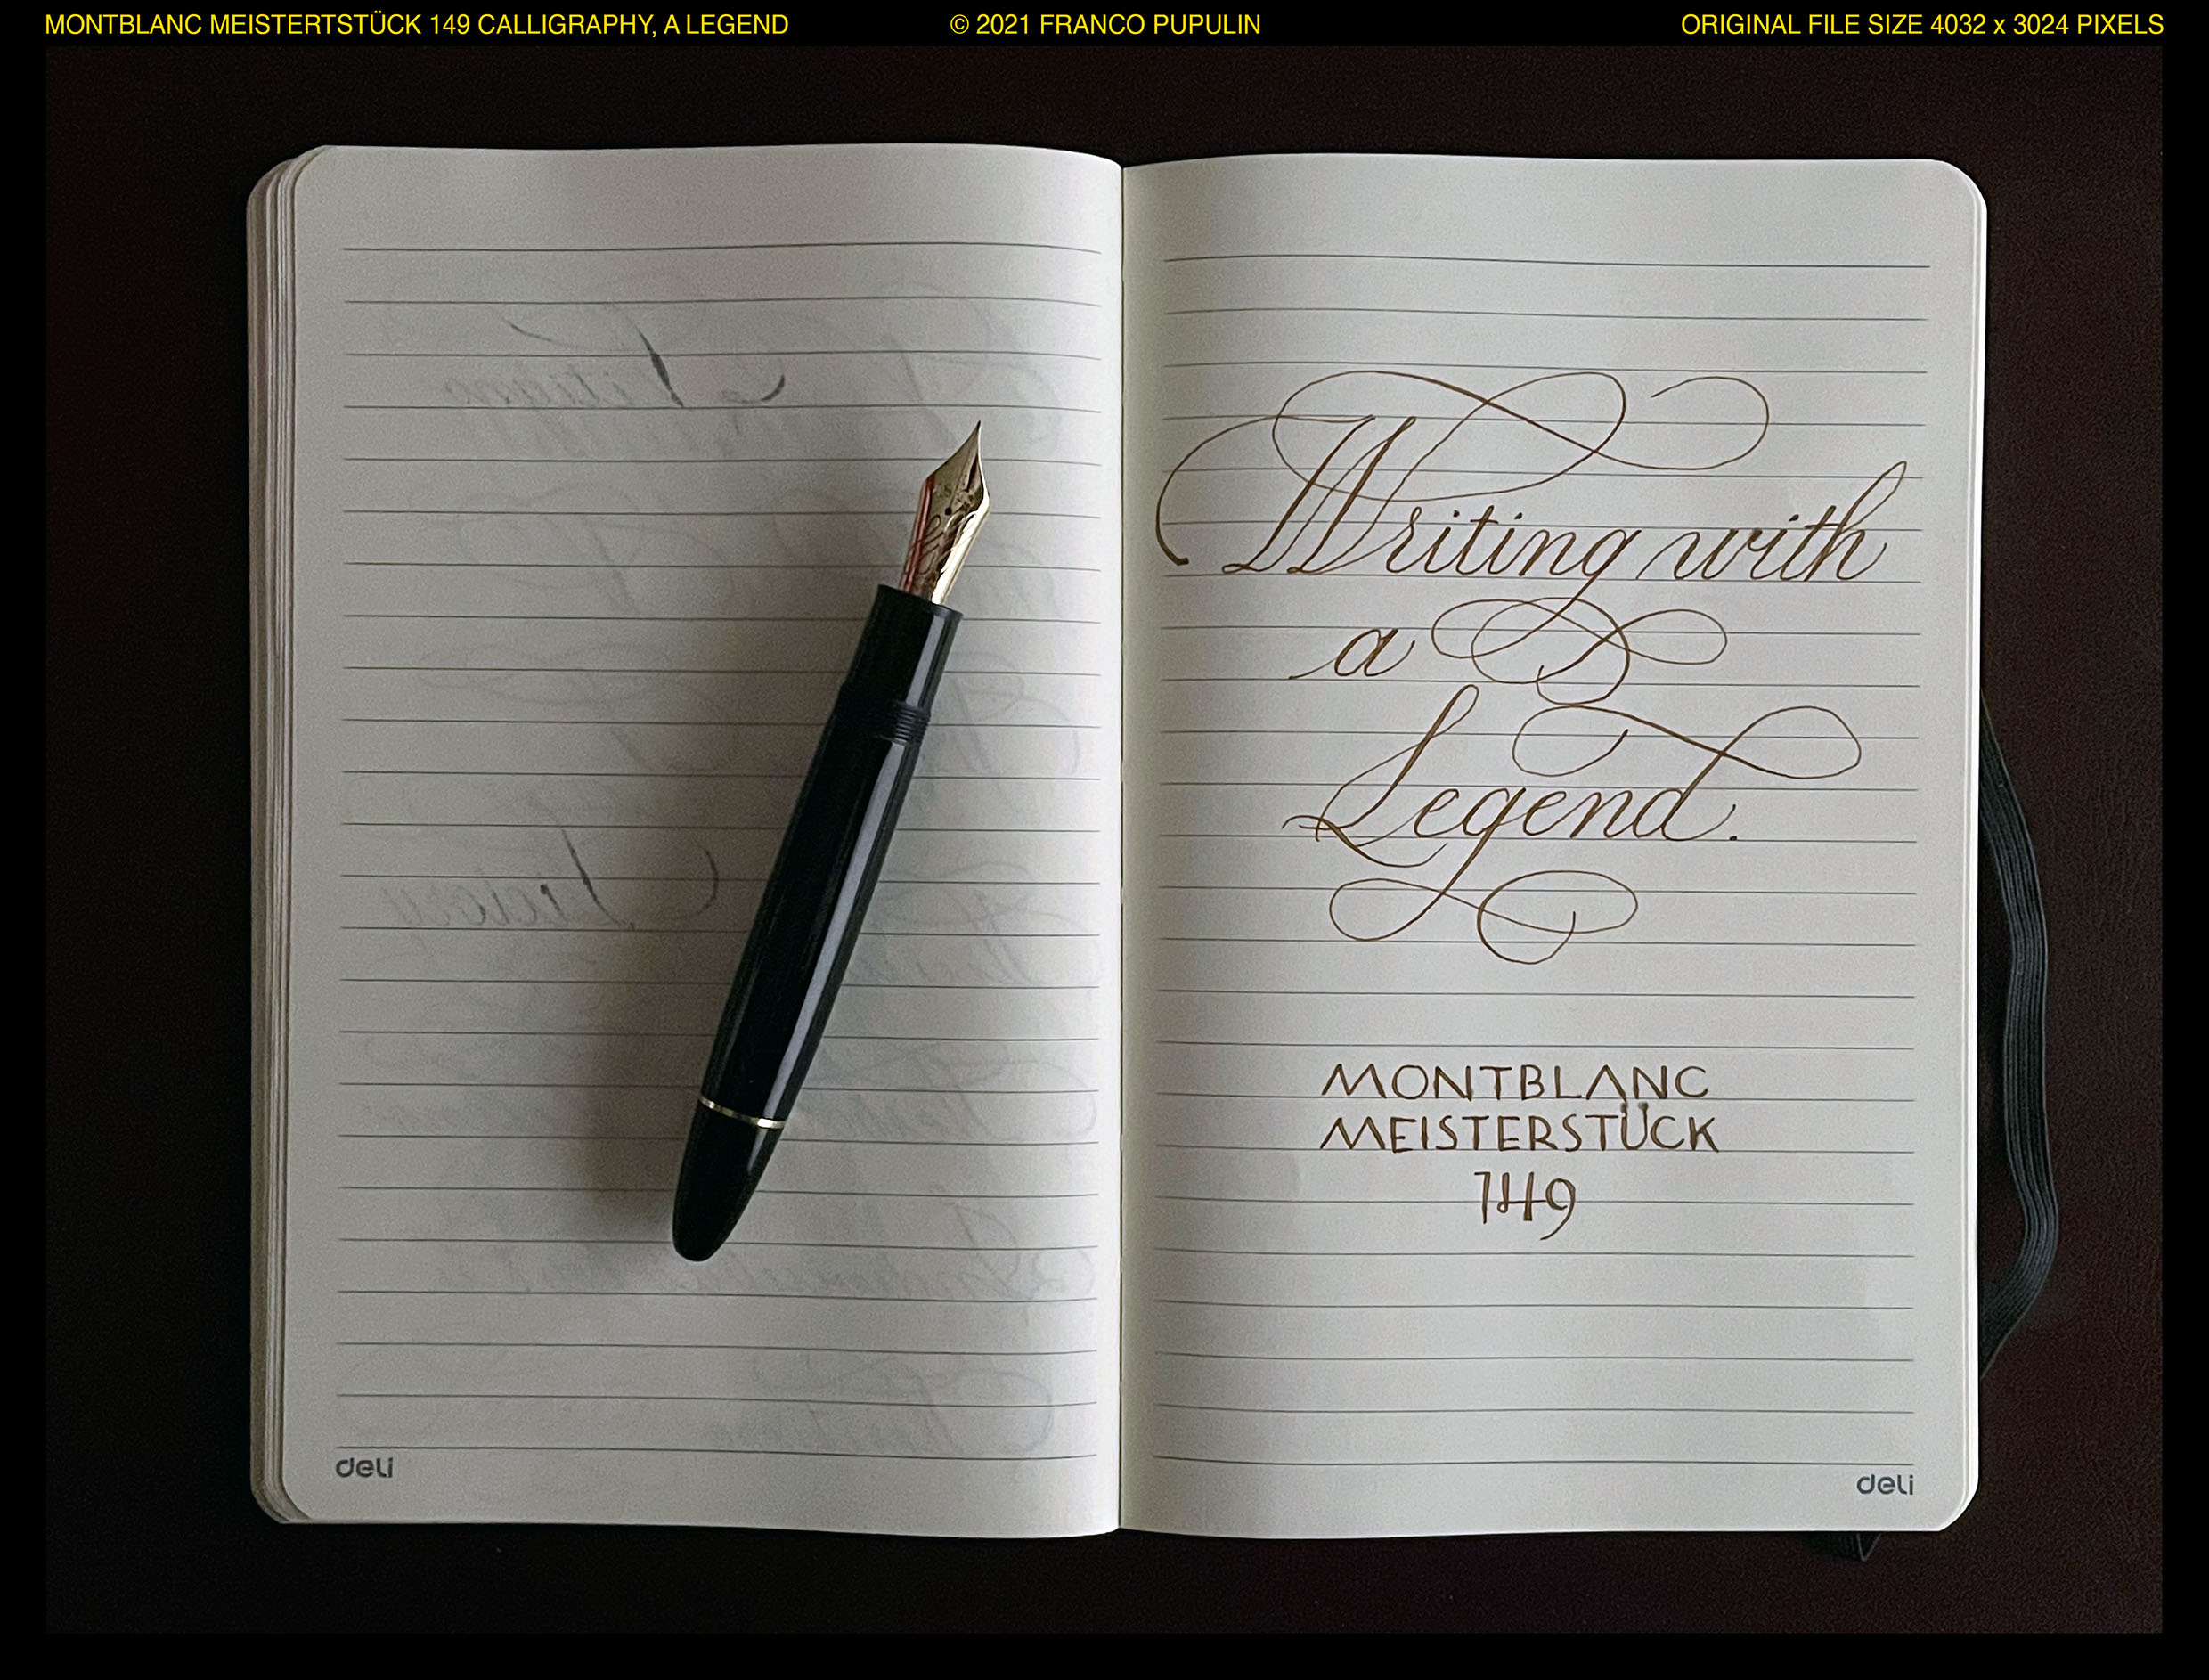 MONTBLANC MEISTERTSTÜCK 149 CALLIGRAPHY, A LEGEND
© 2021 FRANCO PUPULIN
ORIGINAL FILE SIZE 4032 x 3024 PIXELS
Writing with
a
Legend.
MONTBLANC
MEISTERSTÜCK
149
deli
deli